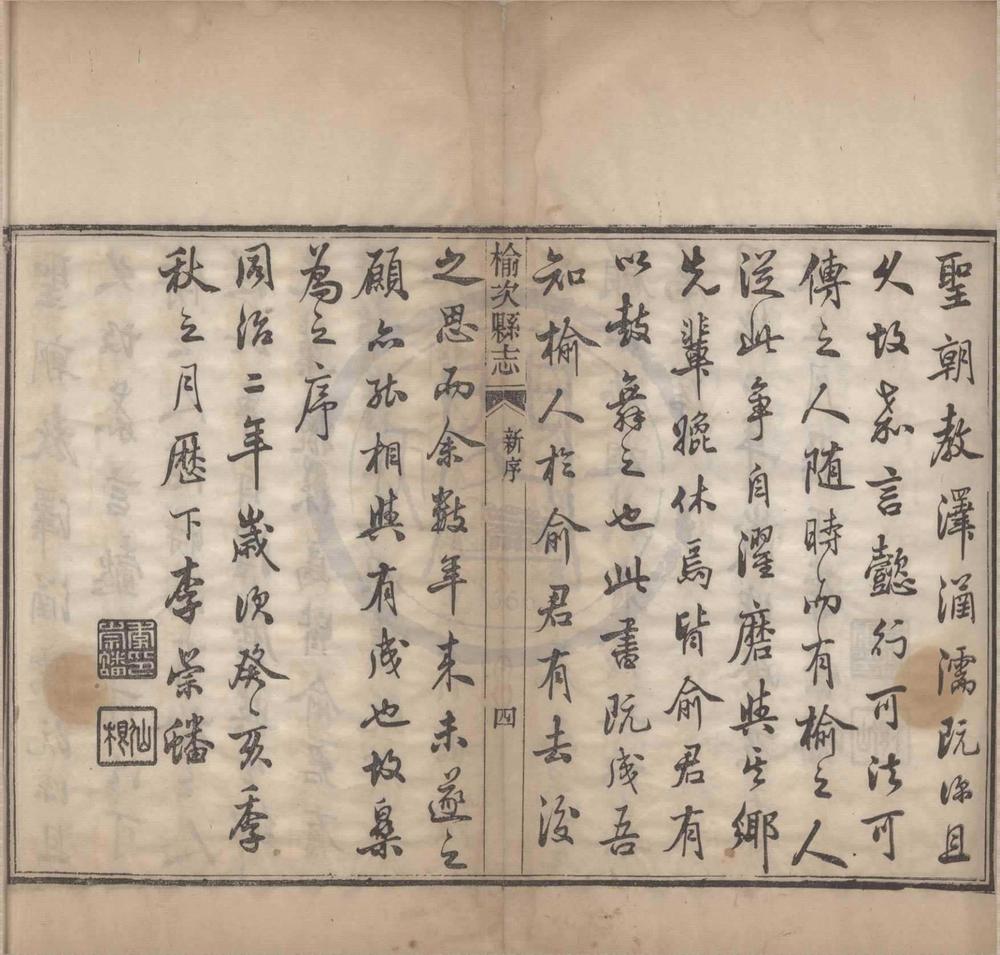 聖朝教澤涵濡既深且
久故嘉言懿行可法可
傳之人隨時而有榆之人
從此爭自濯磨與其鄉
先輩媲休焉皆俞君有
以鼓舞之也此書既成吾
知榆人於俞君有去後
榆次縣志
新序
四
之思而余數年來未遂之
願亦能相與有成也故樂
為之序
同治二年歲次癸亥季
秋之月歷下李崇蟠
李崇蟠印
仙根